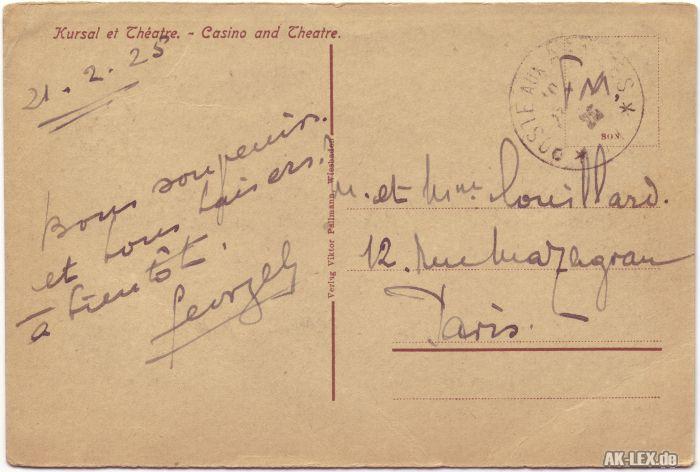 Kursal et Théatre. - Casino and Theatre.
21.2.25
Bons souvenirs.
et bons baisers!
à bientôt.
Georges
Verlag Viktor Pallmann, Wiesbaden
POSTE AUX ARMÉES
F.M.
M. et Mme Couillard.
12. Rue Mazagran
Paris. -
AK-LEX.de